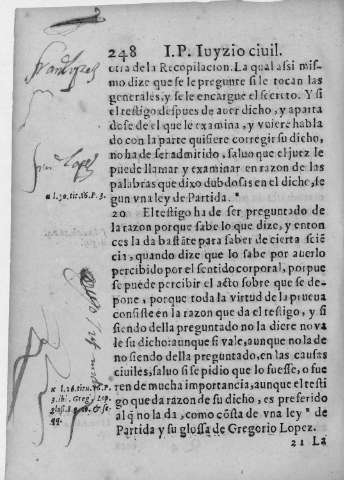 248 I.P. Iuyzio ciuil.
otra de la Recopilacion. La qual assi mis-
mo dize que se le pregunte si le tocan las
generales, y se le encargue el secreto. Y si
el testigo despues de auer dicho, y aparta
dose de el que le examina, y vuiere habla
do con la parte quisiere corregir su dicho,
no ha de ser admitido, saluo que el juez le
puede llamar y examinar en razon de las
palabras que dixo dubdosas en el dicho, se
gun vna ley de Partida.
20 El testigo ha de ser preguntado de
la razon porque sabe lo que dize, y enton
ces la da bastãte para saber de cierta sciẽ
cia, quando dize que lo sabe por auerlo
percibido por el sentido corporal, porque
se puede percibir el acto sobre que se de-
pone, porque toda la virtud de la prueua
consiste en la razon que da el testigo, y si
siendo della preguntado no la diere no va
le su dicho: aunque si vale, aunque no la de
no siendo della preguntado, en las causas
ciuiles, saluo si se pidio que lo fuesse, o fue
ren de mucha importancia, aunque el testi
go que da razon de su dicho, es preferido
al q̃ no la da, como cõsta de vna ley de
Partida y su glossa de Gregorio Lopez.
21 La
Lopez
l. 30. tit. 16. P. 3.
l. 26. titu. 16. P.
3. ibi Greg. Lop.